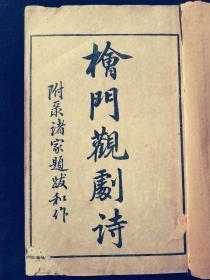 檜門觀劇诗
附录諸家題跋和作